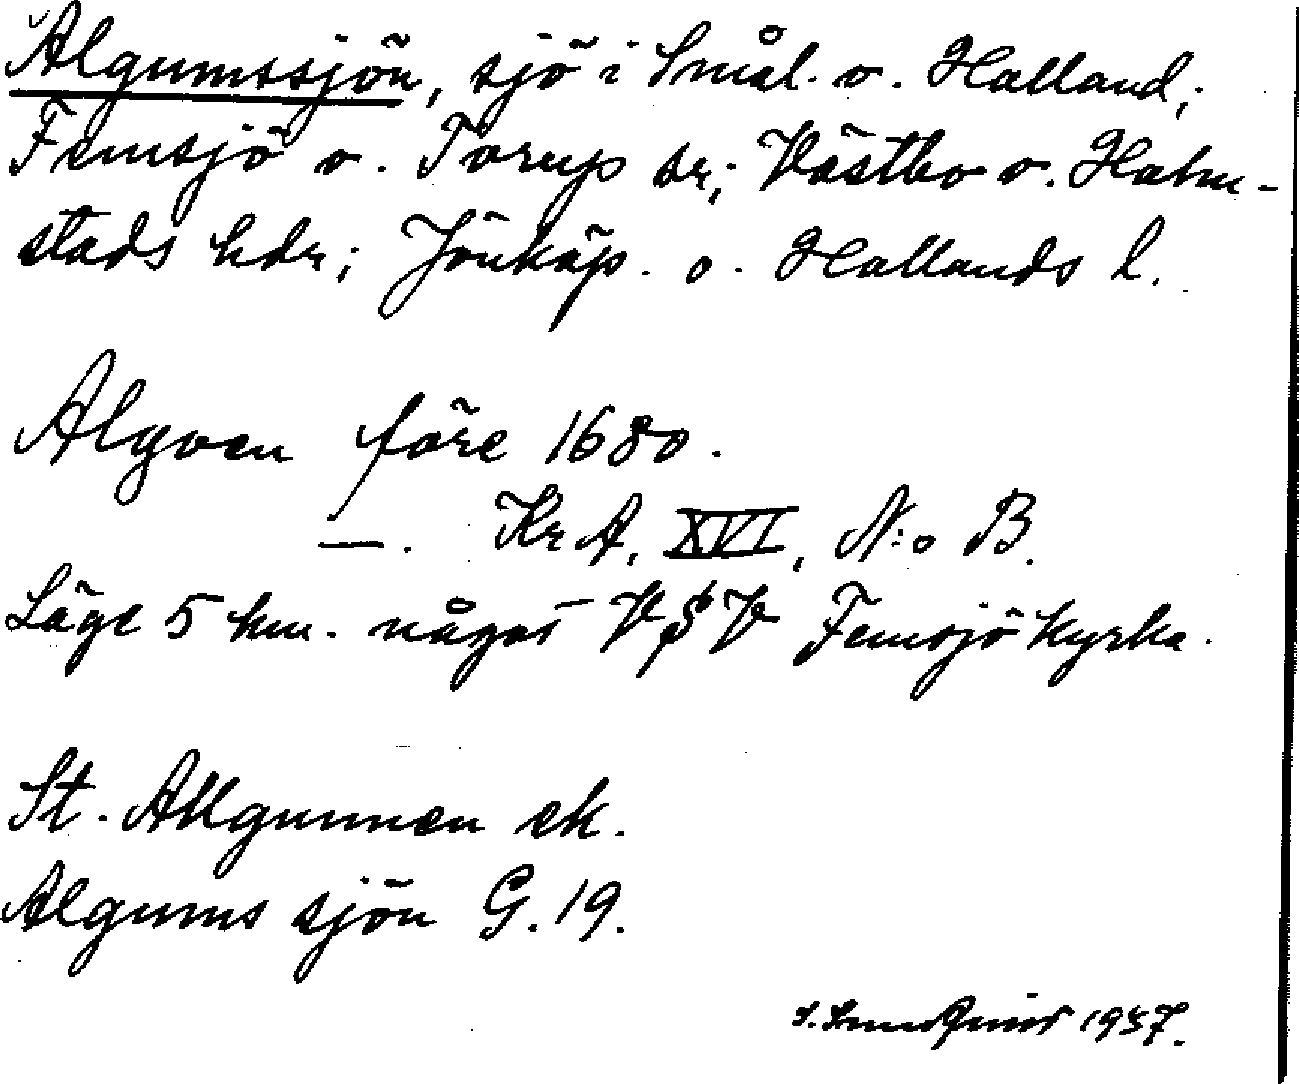 Älgumssjön, sjö i Smål. o. Halland,
Femsjö o. Torup sr; Västbo o. Halm-
stads hdr; Jönköp. o. Hallands l.
Algoen före 1680.
—. KrA, XVI, N:o B.
Läge 5 km. något V Femsjö kyrka.
St. Allgunnen ek.
Algums sjön G. 19.
1937.